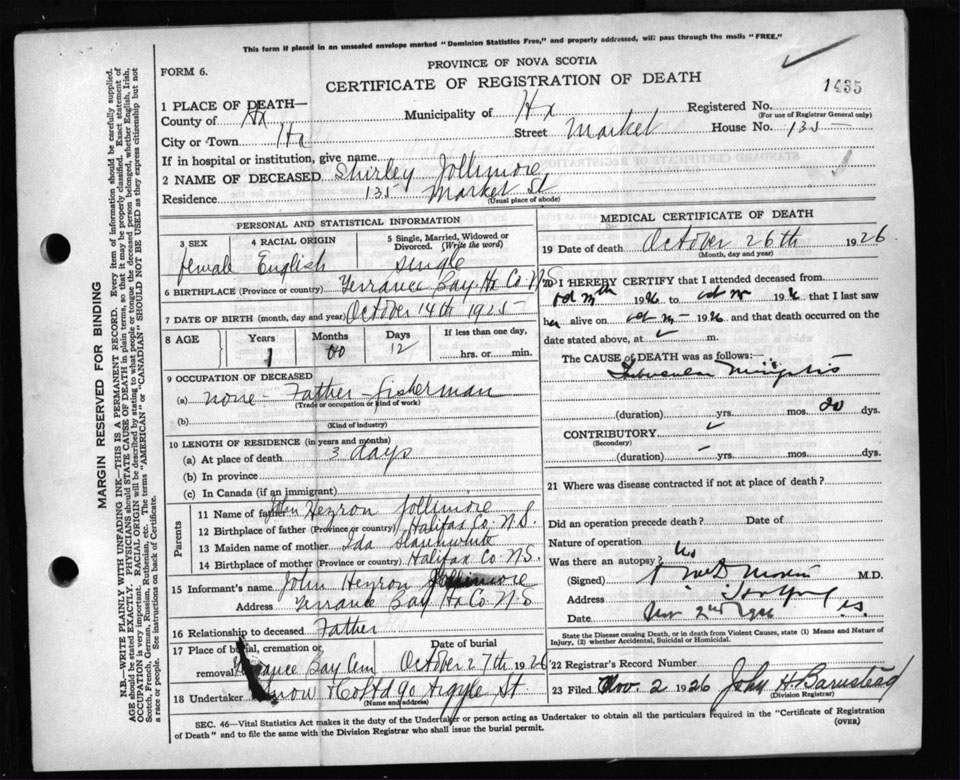 This form if placed in an unsealed envelope marked "Dominion Statistics Free," and properly addressed, will pass through the mails "FREE."
FORM 6.
PROVINCE OF NOVA SCOTIA
CERTIFICATE OF REGISTRATION OF DEATH
1435
1 PLACE OF DEATH—
County of Hx Municipality of Hx Registered No.
(For use of Registrar General only)
City or Town Hx Street Market House No. 135 —
If in hospital or institution, give name
2 NAME OF DECEASED Shirley Jollimore
Residence 135 Market St
(Usual place of abode)
PERSONAL AND STATISTICAL INFORMATION
3 SEX 4 RACIAL ORIGIN 5 Single, Married, Widowed or Divorced. (Write the word)
female English single
6 BIRTHPLACE (Province or country) Terrance Bay Hx Co N.S
7 DATE OF BIRTH (month, day and year) October 14th 1925
8 AGE Years Months Days If less than one day,
1 00 12 hrs. or min.
9 OCCUPATION OF DECEASED
(a) none - Father - fisherman
(Trade or occupation or kind of work)
(b)
(Kind of industry)
10 LENGTH OF RESIDENCE (in years and months)
(a) At place of death 3 days
(b) In province
(c) In Canada (if an immigrant)
Parents
11 Name of father John Hezron Jollimore
12 Birthplace of father (Province or country) Halifax Co N.S.
13 Maiden name of mother Ida Slaunwhite
14 Birthplace of mother (Province or country) Halifax Co N.S.
15 Informant's name John Hezron Jollimore
Address Terrance Bay Hx Co N.S
16 Relationship to deceased Father
17 Place of burial, cremation or removal Date of burial
Terrance Bay Cem October 27th 1926
18 Undertaker Snow & Co Ltd 90 Argyle St.
(Name and address)
MEDICAL CERTIFICATE OF DEATH
19 Date of death October 26th 1926
(Month, day and year)
20 I HEREBY CERTIFY that I attended deceased from
1926 to 1926 that I last saw
her alive on 1926 and that death occurred on the
date stated above, at m.
The CAUSE of DEATH was as follows:
Tubercular Meningitis
(duration) yrs. mos. 20 dys.
CONTRIBUTORY
(Secondary)
(duration) yrs. mos. dys.
21 Where was disease contracted if not at place of death?
Did an operation precede death? Date of
Nature of operation
Was there an autopsy? No
(Signed) M.D.
Address
Date Nov 2nd 1926
State the Disease causing Death, or in death from Violent Causes, state (1) Means and Nature of Injury, (2) whether Accidental, Suicidal or Homicidal.
22 Registrar's Record Number
23 Filed Nov. 2 1926 John H. Barnstead
(Division Registrar)
SEC. 46—Vital Statistics Act makes it the duty of the Undertaker or person acting as Undertaker to obtain all the particulars required in the "Certificate of Registration
of Death" and to file the same with the Division Registrar who shall issue the burial permit.
(OVER)
MARGIN RESERVED FOR BINDING
N.B.—WRITE PLAINLY WITH UNFADING INK—THIS IS A PERMANENT RECORD. Every item of information should be carefully supplied.
AGE should be stated EXACTLY. PHYSICIANS should STATE CAUSE OF DEATH in plain terms, so that it may be properly classified. Exact statement of
OCCUPATION is very important. RACIAL ORIGIN will be described by stating to what people or tongue the deceased person belonged, whether English, Irish,
Scotch, French, German, Russian, Ruthenian, etc. The terms "AMERICAN" or "CANADIAN" SHOULD NOT BE USED as they express citizenship but not
a race or people. See instructions on back of Certificate.